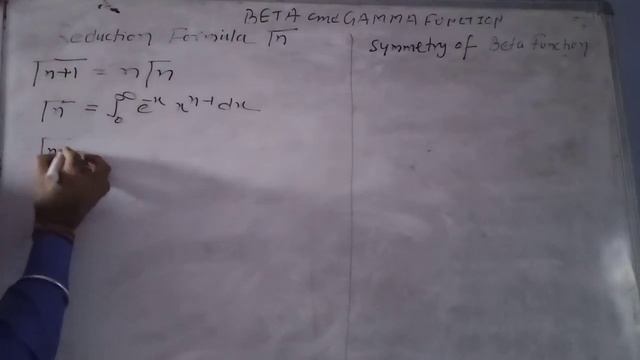 BETA and GAMMA FUNCTION
Reduction Formula Γn
Γn+1 = n Γn
Γn = ∫₀^∞ e^-x x^n-1 dx
Γn
Symmetry of Beta function